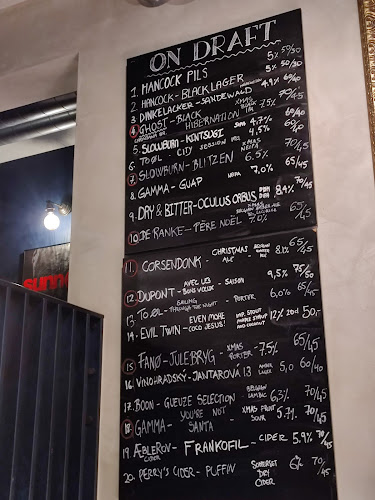 ON DRAFT
1. HANCOCK PILS 5% 50/30
2. HANCOCK - BLACK LAGER 5% 50/30
3. DINKELACKER - SANDEWALD 4.9% 60/40
4. GHOST - BLACK HIBERNATION XMAS 7.5% 70/45
5. SLOWBURN - KINTSUGI 4.7% 60/40
6. TO ØL - CITY SESSION IPA 4,5% 60/40
7. SLOWBURN - BLITZEN XMAS NEIPA 6.5% 70/45
8. GAMMA - GUAP 7,0% 65/45
9. DRY & BITTER - OCULUS ORBUS DDH 8.4% 70/45
10. DE RANKE - PÈRE NOËL XMAS 7.0% 65/45
11. CORSENDONK - CHRISTMAS ALE 8.1% 65/45
12. DUPONT - AVEC LES BONS VOEUX - SAISON 9,5% 75/50
13. TO ØL - SAILING THROUGH THE NIGHT - PORTER 6,0% 65/45
14. EVIL TWIN - EVEN MORE COCO JESUS! IMP. STOUT MAPLE SYRUP AND COCONUT 12% 20cl 50,-
15. FANØ - JULEBRYG - XMAS PORTER - 7.5% 65/45
16. VINOHRADSKÝ - JANTAROVÁ 13 AMBER LAGER 5,0 60/40
17. BOON - GUEUZE SELECTION BELGIAN LAMBIC 6,3% 70/45
18. GAMMA - YOU'RE NOT SANTA - XMAS FRUIT SOUR 5.7% 70/45
19. ÆBLEROV CIDER - FRANKOFIL - CIDER 5.9% 70/45
20. PERRY'S CIDER - PUFFIN SOMERSET DRY CIDER 6% 70/45